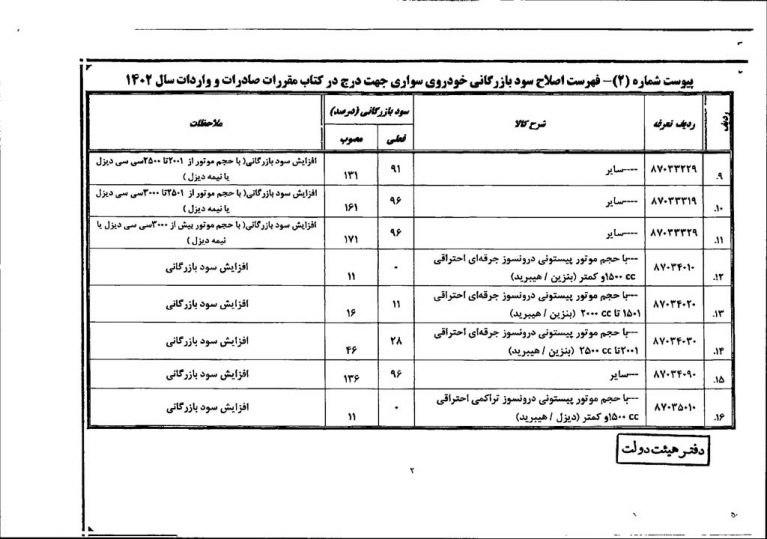 پیوست شماره (۲)– فهرست اصلاح سود بازرگانی خودروی سواری جهت درج در کتاب مقررات صادرات و واردات سال ۱۴۰۲
ردیف ردیف تعرفه شرح کالا سود بازرگانی (درصد) ملاحظات
فعلی مصوب
۹. ۸۷۰۳۳۲۲۹ ----سایر ۹۱ ۱۳۱ افزایش سود بازرگانی( با حجم موتور از ۲۰۰۱تا ۲۵۰۰سی سی دیزل
یا نیمه دیزل )
۱۰. ۸۷۰۳۳۳۱۹ ----سایر ۹۶ ۱۶۱ افزایش سود بازرگانی( با حجم موتور از ۲۵۰۱تا ۳۰۰۰سی سی دیزل
یا نیمه دیزل )
۱۱. ۸۷۰۳۳۳۲۹ ----سایر ۹۶ ۱۷۱ افزایش سود بازرگانی( با حجم موتور بیش از ۳۰۰۰سی سی دیزل یا
نیمه دیزل )
۱۲. ۸۷۰۳۴۰۱۰ ---با حجم موتور پیستونی درونسوز جرقه‌ای احتراقی
۱۵۰۰ cc و کمتر (بنزین / هیبرید) ۰ ۱۱ افزایش سود بازرگانی
۱۳. ۸۷۰۳۴۰۲۰ ---با حجم موتور پیستونی درونسوز جرقه‌ای احتراقی
۱۵۰۱ تا ۲۰۰۰ cc (بنزین / هیبرید) ۱۱ ۱۶ افزایش سود بازرگانی
۱۴. ۸۷۰۳۴۰۳۰ ---با حجم موتور پیستونی درونسوز جرقه‌ای احتراقی
۲۰۰۱تا ۲۵۰۰ cc (بنزین / هیبرید) ۲۸ ۴۶ افزایش سود بازرگانی
۱۵. ۸۷۰۳۴۰۹۰ ---سایر ۹۶ ۱۳۶ افزایش سود بازرگانی
۱۶. ۸۷۰۳۵۰۱۰ ---با حجم موتور پیستونی درونسوز تراکمی احتراقی
۱۵۰۰ cc و کمتر (دیزل / هیبرید) ۰ ۱۱ افزایش سود بازرگانی
دفتر هیئت دولت
۲